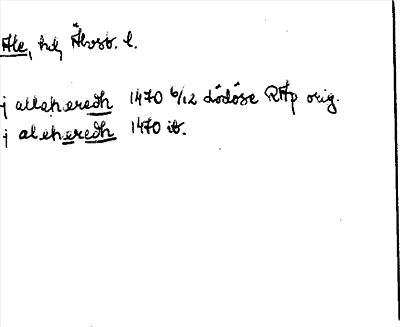 Ale, hd, Älvsb. l.
j allahæredh 1470 6/12 Lödöse RAp orig.
j alehæredh 1470 ib.